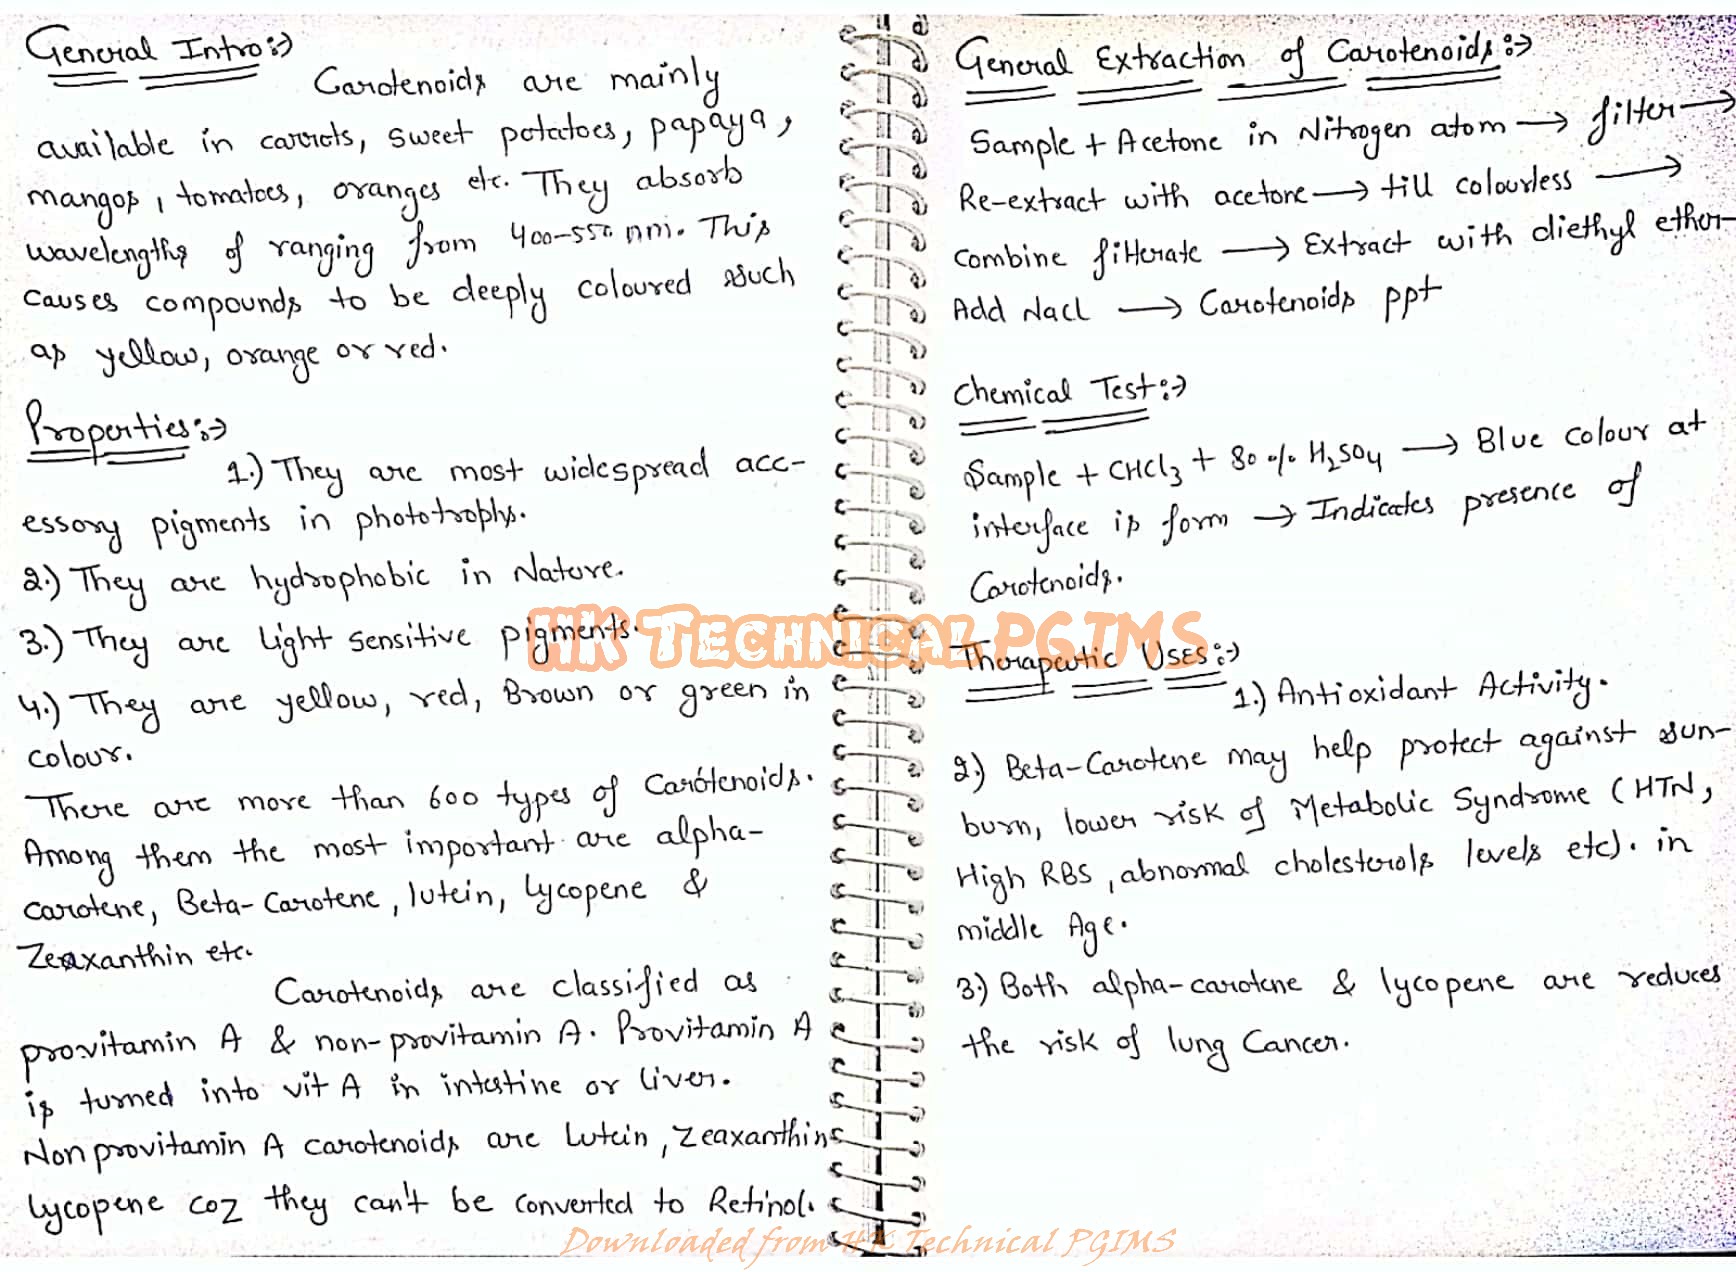 General Intro:→
Carotenoids are mainly
available in carrots, sweet potatoes, papaya,
mangos, tomatoes, oranges etc. They absorb
wavelengths of ranging from 400-550 nm. This
causes compounds to be deeply coloured such
as yellow, orange or red.
Properties:→
1.) They are most widespread acc-
essory pigments in phototrophs.
2.) They are hydrophobic in Nature.
3.) They are light sensitive pigments.
4.) They are yellow, red, Brown or green in
colour.
There are more than 600 types of Carotenoids.
Among them the most important are alpha-
carotene, Beta-Carotene, lutein, lycopene &
Zeaxanthin etc.
Carotenoids are classified as
provitamin A & non-provitamin A. Provitamin A
is turned into vit A in intestine or liver.
Non provitamin A carotenoids are Lutein, Zeaxanthin
lycopene coz they can't be converted to Retinol.
General Extraction of Carotenoids:→
Sample + Acetone in Nitrogen atom → filter →
Re-extract with acetone → till colourless →
combine filterate → Extract with diethyl ether-
Add Nacl → Carotenoids ppt
Chemical Test:→
Sample + CHCl3 + 80 % H2SO4 → Blue colour at
interface is form → Indicates presence of
Carotenoids.
Therapeutic Uses:→
1.) Antioxidant Activity.
2.) Beta-Carotene may help protect against sun-
burn, lower risk of Metabolic Syndrome (HTN,
High RBS, abnormal cholesterols levels etc). in
middle Age.
3.) Both alpha-carotene & lycopene are reduces
the risk of lung Cancer.
HK Technical PGIMS
Downloaded from HK Technical PGIMS